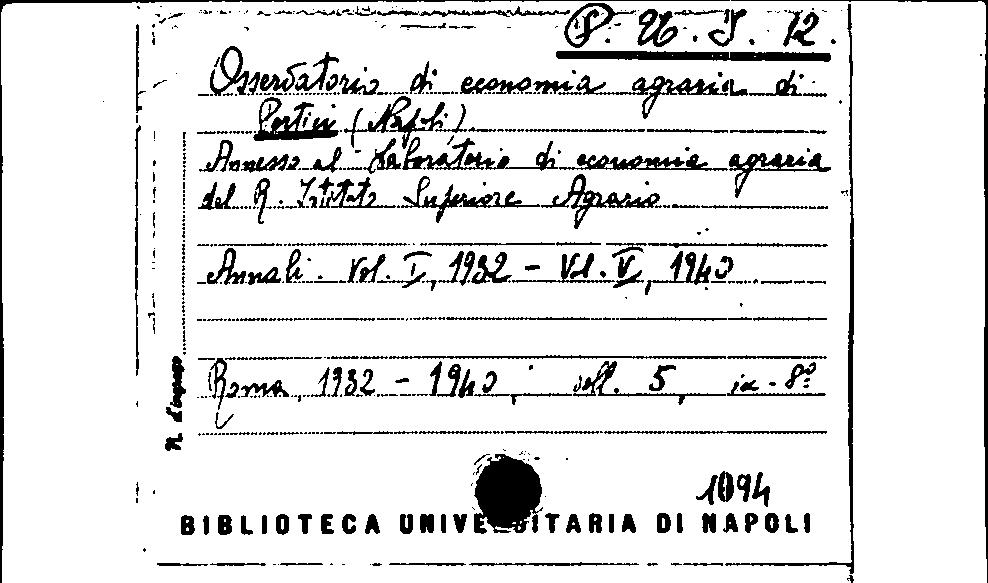 P. 26. I. 12.
Osservatorio di economia agraria di
Portici (Napoli)
Annesso al Laboratorio di economia agraria
del R. Istituto Superiore Agrario.
Annali. Vol. I, 1932 - Vol. V, 1940
Roma, 1932 - 1940, voll. 5, in-8º
N. d'ingresso
1094
BIBLIOTECA UNIVERSITARIA DI NAPOLI